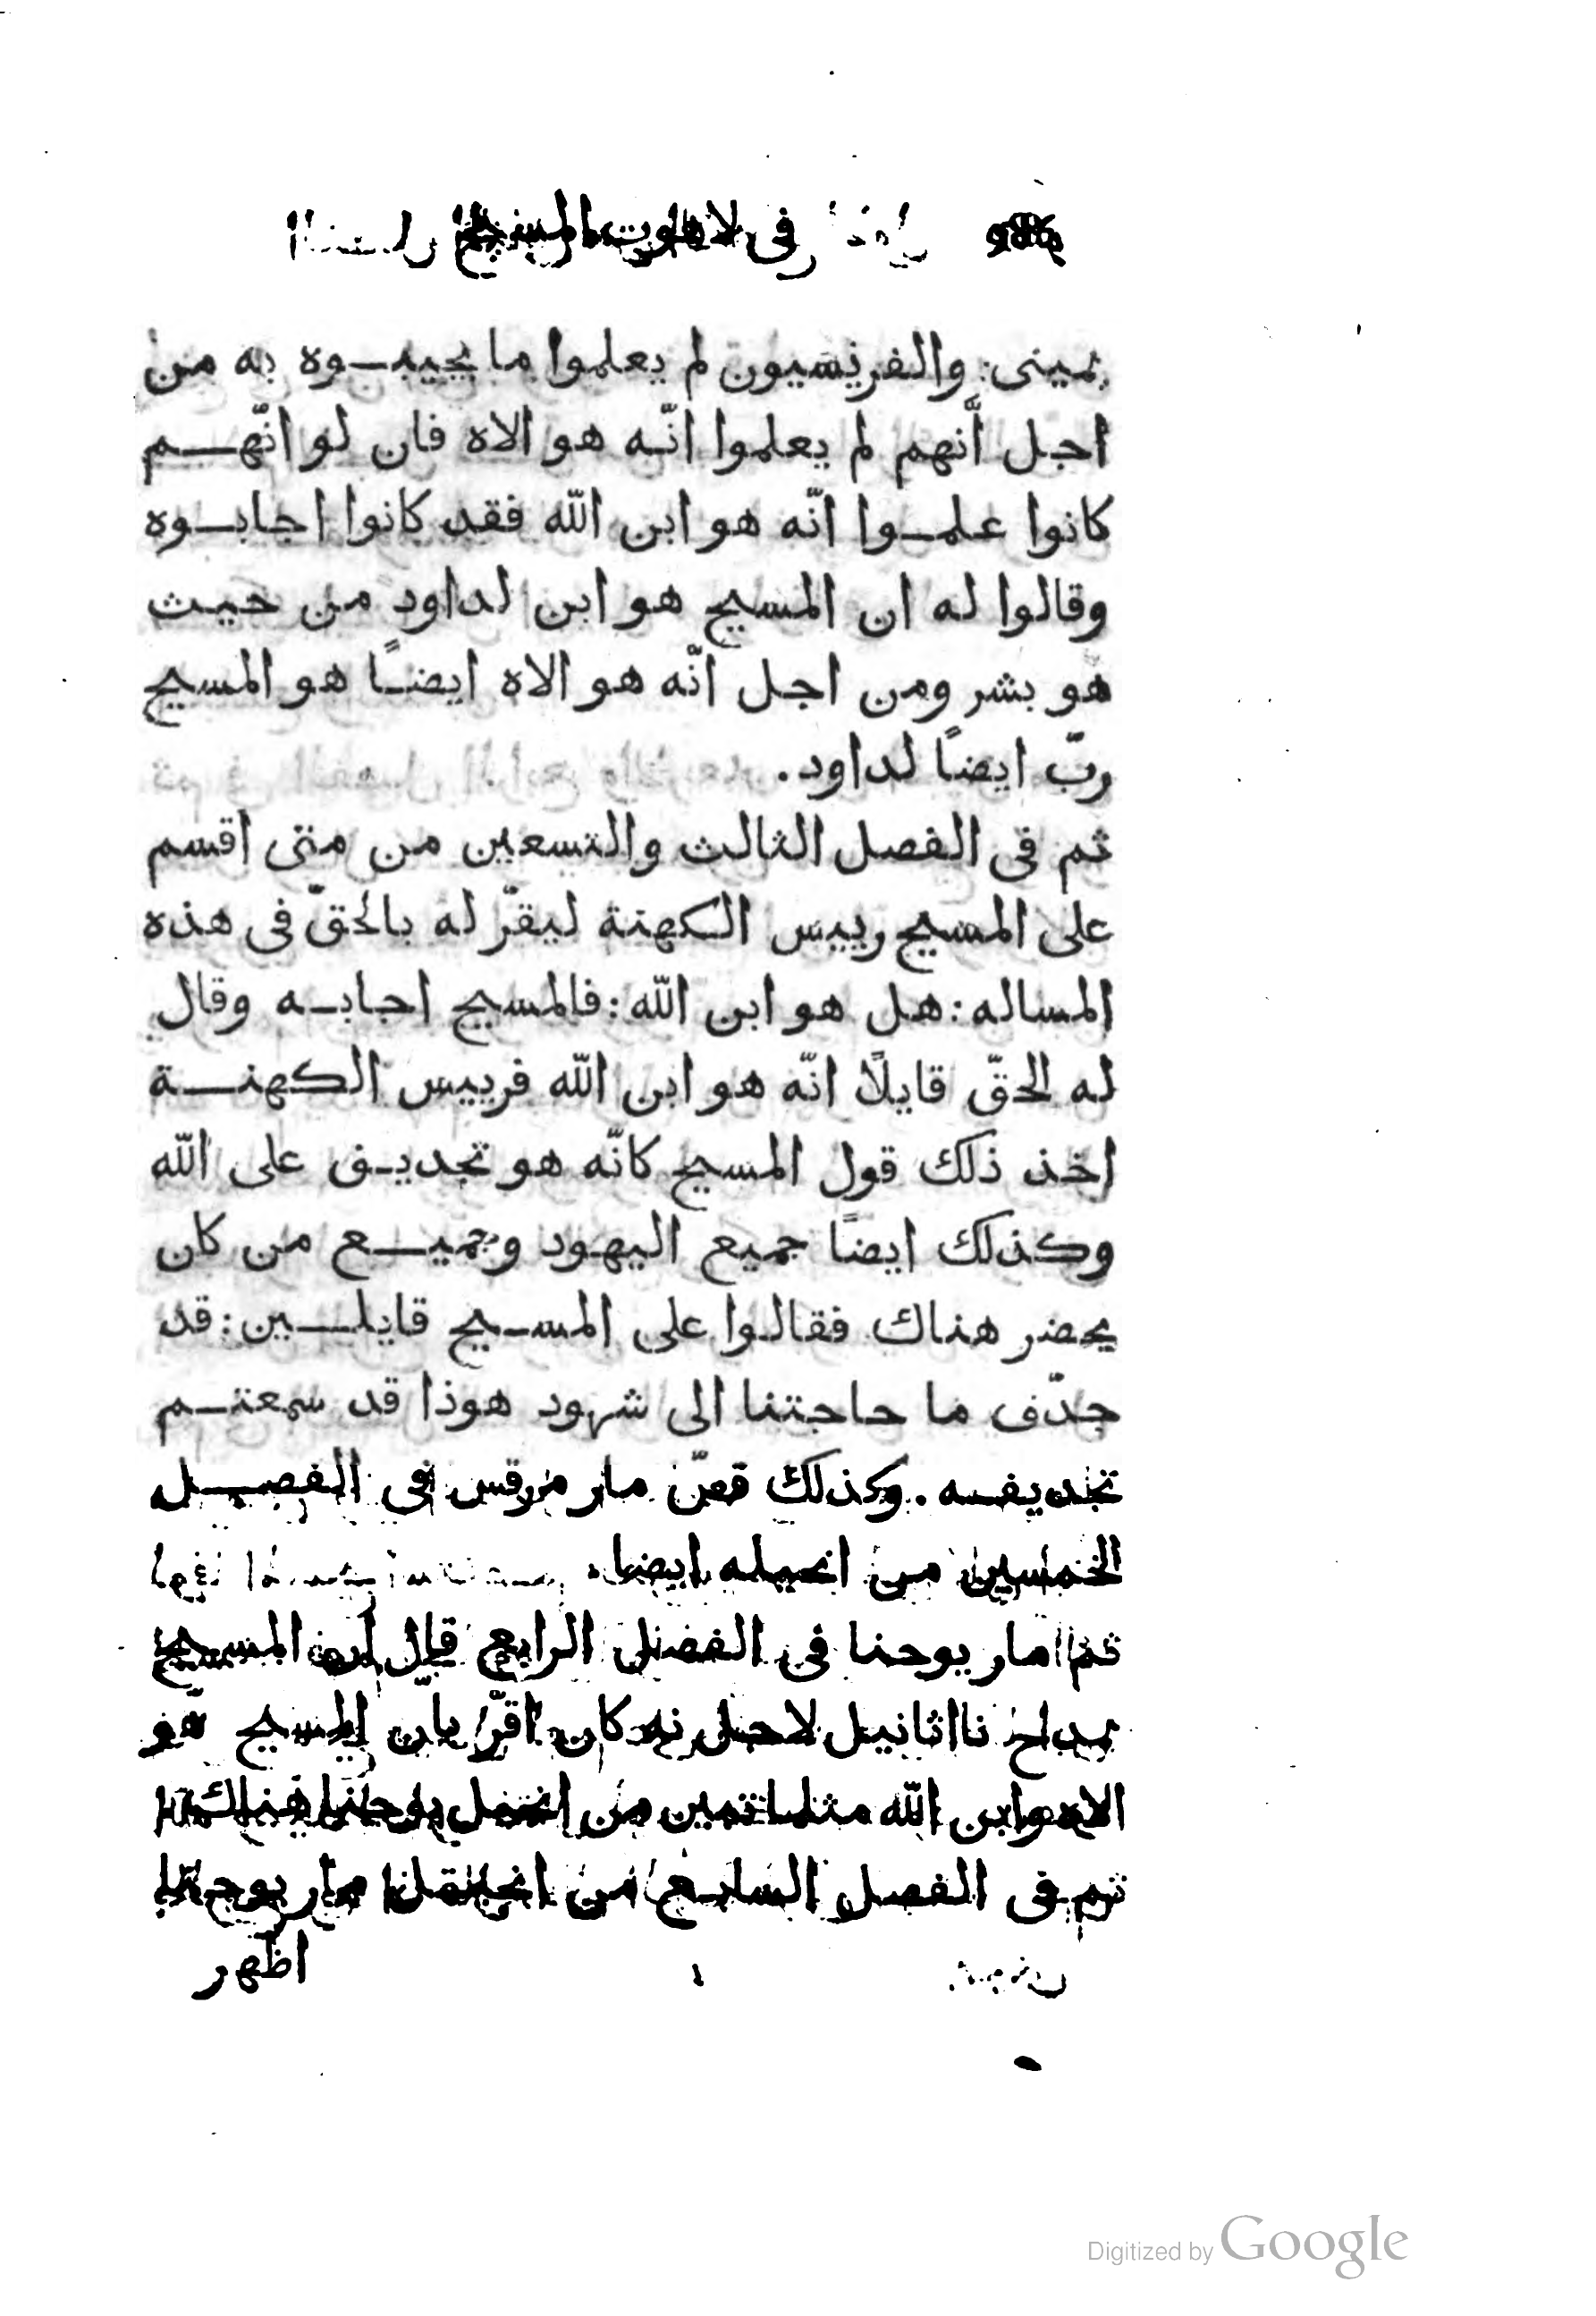 فى لاهوت المسيح
بمينى: والفريسيون لم يعلموا ما يجيبـوه به من
اجل أنّهم لم يعلموا انّـه هو الاه فان لو انّهـــم
كانوا علمـوا انّه هو ابن اللّه فقد كانوا اجابـوه
وقالوا له ان المسيح هو ابن لداود من حيث
هو بشر ومن اجل انّه هو الاه ايضـًا هو المسيح
ربّ ايضًا لداود.
ثم فى الفصل الثالث والتسعين من متى اقسم
على المسيح رييس الكهنة ليقرّ له بالحقّ فى هذه
المساله: هل هو ابن اللّه: فالمسيح اجابـه وقال
له الحقّ قايلًا انّه هو ابن اللّه فرييس الكهنـــة
اخذ ذلك قول المسيح كانّه هو تجديـف على اللّه
وكذلك ايضًا جميع اليهود وجميـــع من كان
يحضر هناك فقالوا على المسـيح قايلــين: قد
جدّف ما حاجتنا الى شهود هوذا قد سمعتـم
تجديفـه. وكذلك قصّ مار مرقس فى الفصــل
الخمسين من انجيله ايضا.
ثم مار يوحنا فى الفصل الرابع قال ان المسيح
مداح ناثانيل لاجل انه كان اقرّ بانّ المسيح هو
الاه وابن اللّه مثلما تبين من انجيل يوحنا هناك
ثم فى الفصل السابـع من انجيل مار يوحنا
اظهر
Digitized by Google